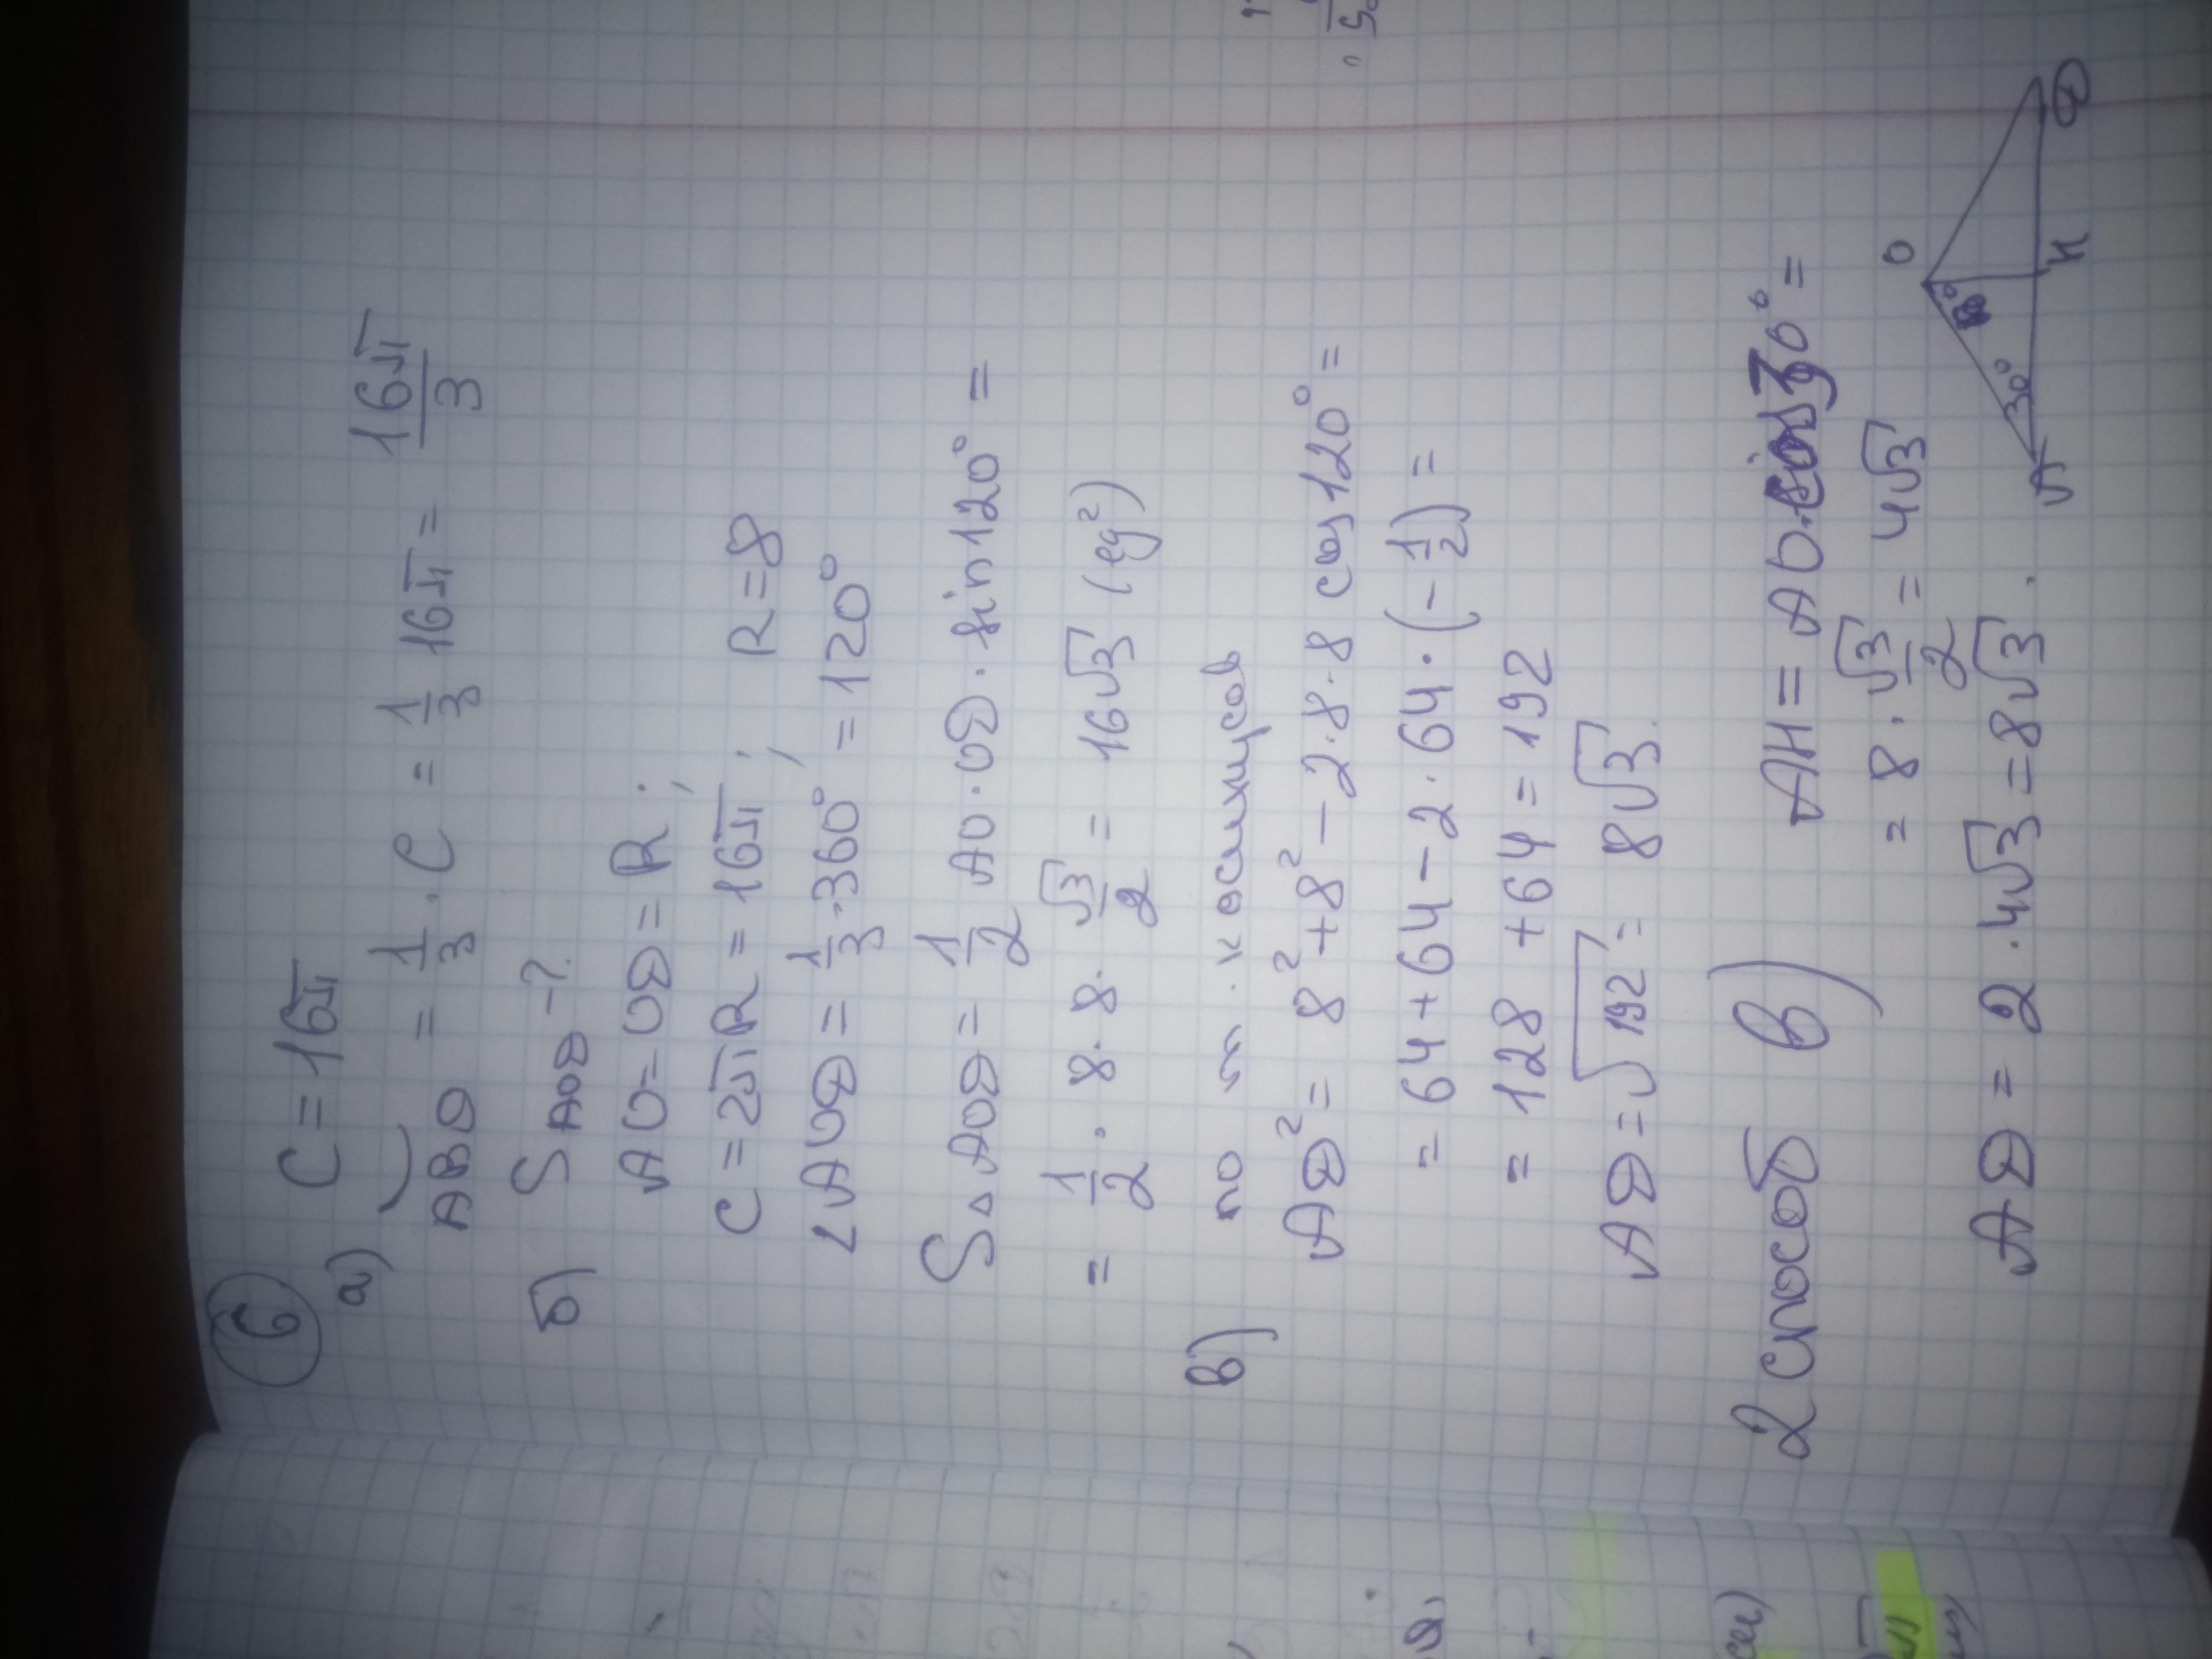 6 C = 16π
а) ABD = 1/3 · C = 1/3 16π = 16π/3
б) S AOD - ?
AO = OD = R ;
C = 2πR = 16π ; R = 8
∠AOD = 1/3 · 360° = 120°
S△AOD = 1/2 AO · OD · sin 120° =
= 1/2 · 8 · 8 · √3/2 = 16√3 (ед²)
в) по т. косинусов
AD² = 8² + 8² - 2 · 8 · 8 cos 120° =
= 64 + 64 - 2 · 64 · (-1/2) =
= 128 + 64 = 192
AD = √192 = 8√3.
2 способ в) AH = AO · 30° =
= 8 · √3/2 = 4√3
AD = 2 · 4√3 = 8√3.
O
30°
A H D